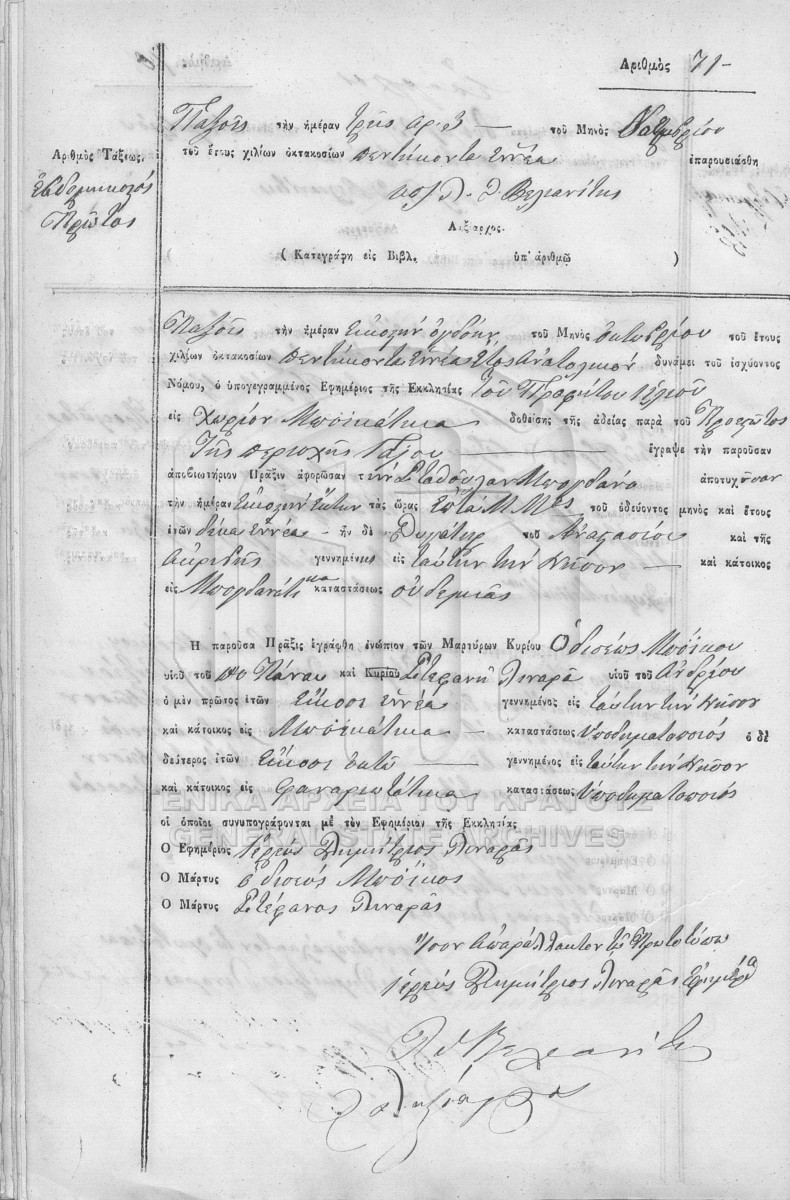 Ἀριθμὸς 71-
Παξοῖς τὴν ἡμέραν τρεῖς ἀρ. 3 — τοῦ Μηνὸς Νοεμβρίου
Ἀριθμὸς Τάξεως.
τοῦ ἔτους χιλίων ὀκτακοσίων πεντήκοντα ἐννέα ἐπαρουσιάσθη
Ἑβδομηκοστὸς
Πρῶτος
Βελιανίτης
Ληξίαρχος.
( Κατεγράφη εἰς Βιβλ. ὑπ' ἀριθμῷ )
Παξοῖς τὴν ἡμέραν εἰκοστὴν ὀγδόην τοῦ Μηνὸς ὀκτωβρίου τοῦ ἔτους
χιλίων ὀκτακοσίων πεντήκοντα ἐννέα Ἔτος Ἀνατολικὸν δυνάμει τοῦ ἰσχύοντος
Νόμου, ὁ ὑπογεγραμμένος Ἐφημέριος τῆς Ἐκκλησίας τοῦ Προφήτου Ἠλιοῦ
εἰς Χωρίον Μποϊκάτικα δοθείσης τῆς ἀδείας παρὰ τοῦ Πρωτ
Τῆς περιοχῆς Γαΐου — ἔγραψε τὴν παροῦσαν
ἀποβιωτήριον Πρᾶξιν ἀφορῶσαν τὴν Σταθούλαν Μπογδανο ἀποτυχοῦσαν
τὴν ἡμέραν εἰκοστὴν ἕκτην τὰς ὥρας ἑπτὰ Μ. Μ τοῦ ὁδεύοντος μηνὸς καὶ ἔτους
ἐτῶν δέκα ἐννέα - ἦν δὲ θυγάτηρ τοῦ Ἀναστασίου καὶ τῆς
Ἀκριβῆς γεννημένης εἰς ταύτην τὴν νῆσον — καὶ κάτοικος
εἰς Μπογδανάτικα καταστάσεως οὐδεμιᾶς
Ἡ παροῦσα Πρᾶξις ἐγράφθη ἐνώπιον τῶν Μαρτύρων Κυρίου Ὀδισέως Μπόϊκου
υἱοῦ τοῦ Πάνου καὶ Κυρίου Στεφανῆ Λιναρᾶ υἱοῦ τοῦ Ἀνδρέου
ὁ μὲν πρῶτος ἐτῶν εἴκοσι ἐννέα γεννημένος εἰς ταύτην τὴν νῆσον
καὶ κάτοικος εἰς Μποϊκάτικα - καταστάσεως ὑποδηματοποιός ὁ δὲ
δεύτερος ἐτῶν εἴκοσι ὀκτὼ — γεννημένος εἰς ταύτην τὴν νῆσον
καὶ κάτοικος εἰς Φαναριωτάτικα καταστάσεως ὑποδηματοποιός
ΓΕΝΙΚΑ ΑΡΧΕΙΑ ΤΟΥ ΚΡΑΤΟΥΣ
οἱ ὁποῖοι συνυπογράφονται μὲ τὸν Ἐφημέριον τῆς Ἐκκλησίας
GENERAL STATE ARCHIVES
Ὁ Ἐφημέριος Ἱερεὺς Δημήτριος Λιναρᾶς
Ὁ Μάρτυς ὀδισεύς Μπόϊκος
Ὁ Μάρτυς Στέφανος Λιναρᾶς
Ἴσον ἀπαράλλακτον τῷ Πρωτοτύπῳ
Ἱερεὺς Δημήτριος Λιναρᾶς Ἐφημέριος
Βελιανίτης
Ληξίαρχος